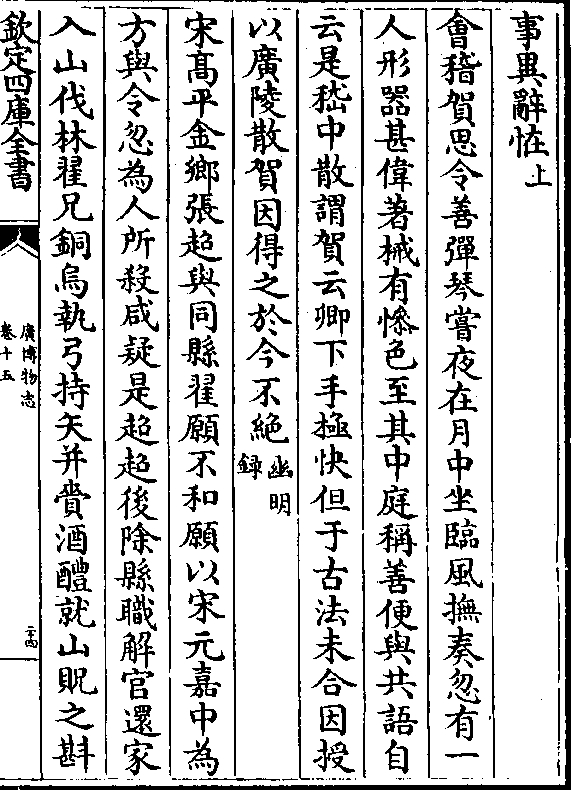 事異辭恠上
㑹稽賀思令善彈琴嘗夜在月中坐臨風撫奏忽有一
人形器甚偉著械有慘色至其中庭稱善便與共語自
云是嵇中散謂賀云卿下手極快但于古法未合因授
以廣陵散賀因得之於今不絶幽明録
宋髙平金鄉張超與同縣翟願不和願以宋元嘉中為
方與令忽為人所殺咸疑是超超後除縣職解官還家
入山伐林翟兄銅烏執弓持矢并賫酒醴就山貺之斟
欽定四庫全書
廣博物志
卷十五
二十四